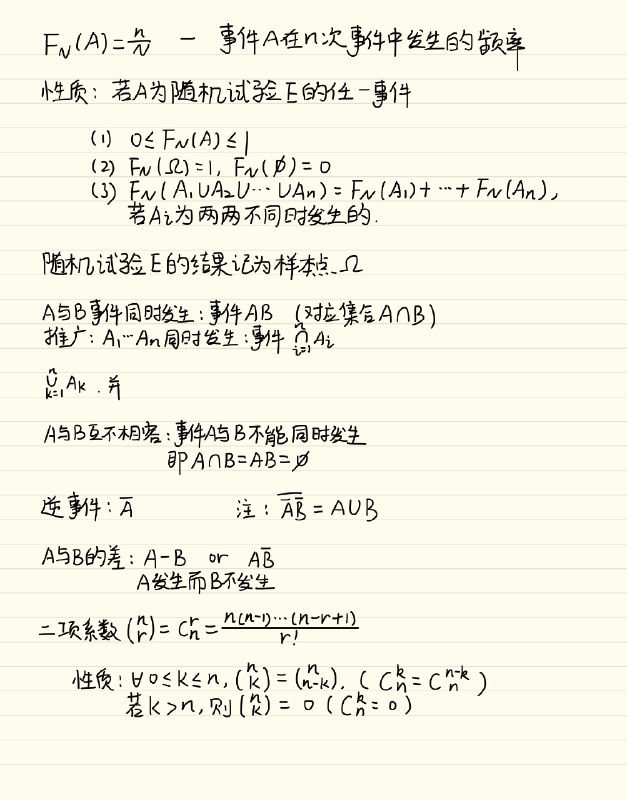 F_N(A) = n/N — 事件A在n次事件中发生的频率
性质：若A为随机试验E的任一事件
(1) 0 ≤ F_N(A) ≤ 1
(2) F_N(Ω)=1, F_N(∅)=0
(3) F_N(A₁∪A₂∪…∪Aₙ) = F_N(A₁)+…+F_N(Aₙ),
若Aᵢ为两两不同时发生的.
随机试验E的结果记为样本点 Ω
A与B事件同时发生：事件AB (对应集合A∩B)
推广：A₁…Aₙ同时发生：事件 ⋂ⁿᵢ₌₁ Aᵢ
⋃ⁿₖ₌₁ Aₖ . 并
A与B互不相容：事件A与B不能同时发生
即A∩B=AB=∅
逆事件：A̅ 注：A̅B̅ (overline) = A∪B
A与B的差：A-B or AB̅
A发生而B不发生
二项系数 (n r) = Cₙʳ = n(n-1)…(n-r+1)/r!
性质：∀ 0≤k≤n, (n k) = (n n-k). ( Cₙᵏ = Cₙⁿ⁻ᵏ )
若k>n, 则 (n k) = 0 ( Cₙᵏ = 0 )